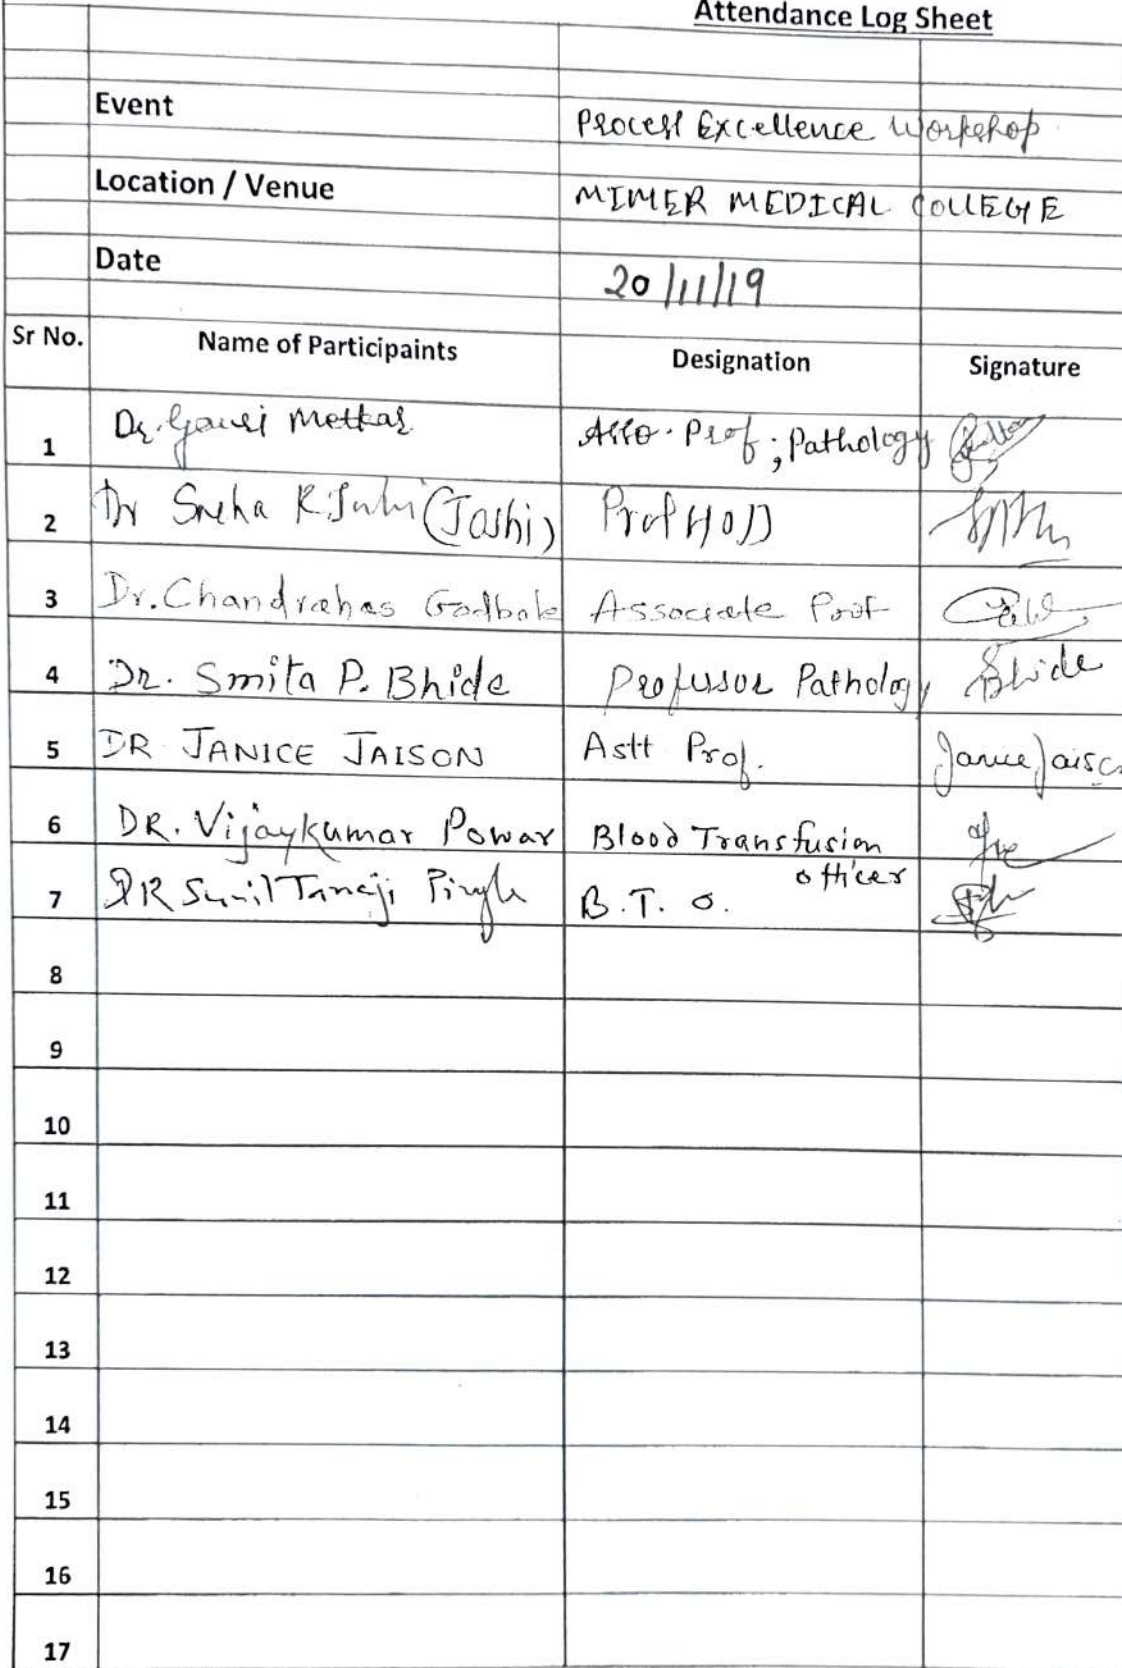 Attendance Log Sheet
Event Process Excellence Workshop
Location / Venue MIMER MEDICAL COLLEGE
Date 20/11/19
Sr No. Name of Participaints Designation Signature
1 Dr. Gauri Metkar Asso. Prof ; Pathology
2 Dr Sneha R. Juhi (Joshi) Prof HOD
3 Dr. Chandrahas Godbole Associate Prof
4 Dr. Smita P. Bhide Professor Pathology Bhide
5 DR JANICE JAISON Astt Prof. Janice Jaiso
6 DR. Vijaykumar Powar Blood Transfusion
officer
7 DR Sunil Tanaji Pingle B.T.O.
8
9
10
11
12
13
14
15
16
17